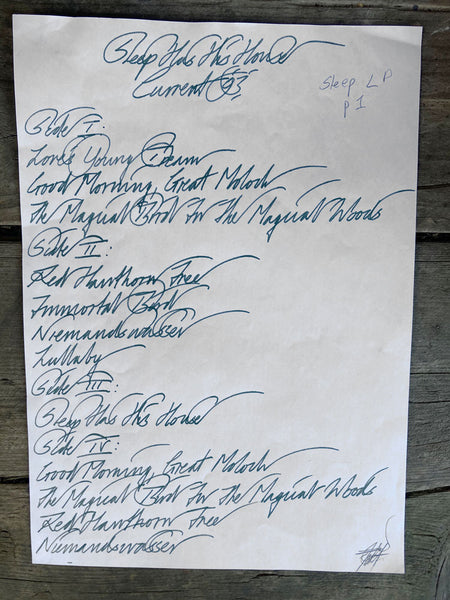 Sleep Has His House
Current 93
Sleep LP
p 1
Side I:
Love's Young Dream
Good Morning, Great Moloch
The Magical Bird In The Magical Woods
Side II:
Red Hawthorn Tree
Immortal Bird
Niemandswasser
Lullaby
Side III:
Sleep Has His House
Side IV:
Good Morning, Great Moloch
The Magical Bird In The Magical Woods
Red Hawthorn Tree
Niemandswasser